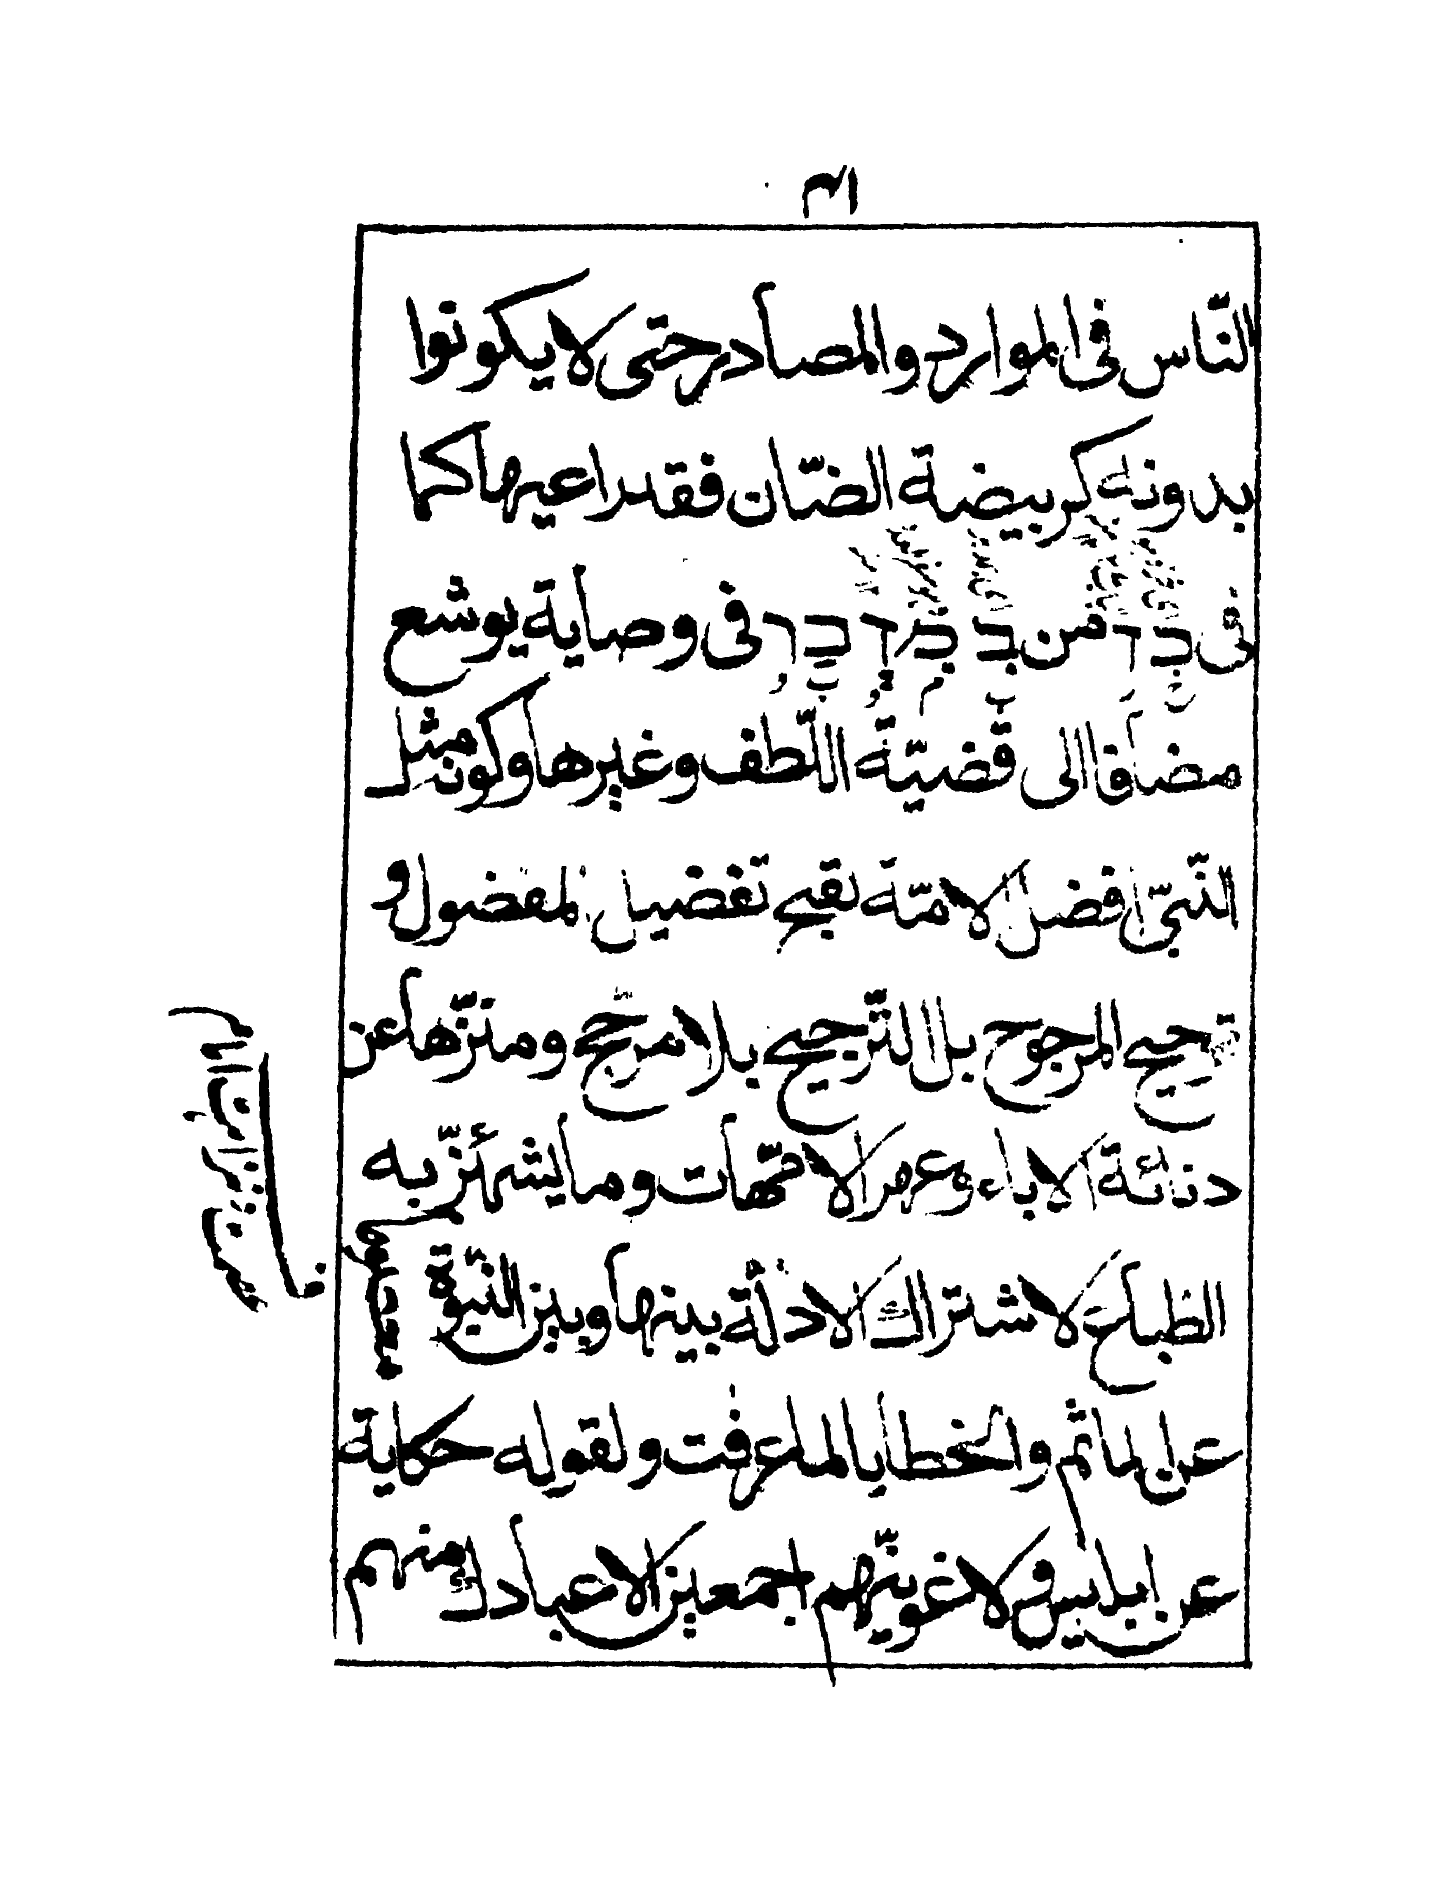 النّاس فى الموارد والمصادر حتى لا يكونوا
بدونه كربيضة الضّان فقد راعيها كما
فى من فى وصاية يوشع
مضافا الى قضيّة اللّطف وغيرها وكونه مثل
النّبىّ افضل الامّة لقبح تفضيل المفضول و
ترجيح المرجوح بل التّرجيح بلا مرجّح ومنزّها عن
دنائة الاباء وعهر الامّهات وما يشمئزّ به
الطّباع لاشتراك الادلّة بينها وبين النّبوّة
عن الماثم والخطايا لما عرفت ولقوله حكاية
عن ابليس ولاغوينّهم اجمعين الا عبادك منهم